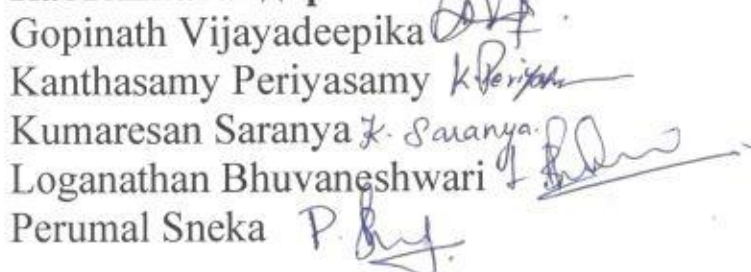 Gopinath Vijayadeepika
Kanthasamy Periyasamy K. Periya
Kumaresan Saranya K. Saranya.
Loganathan Bhuvaneshwari
Perumal Sneka P.